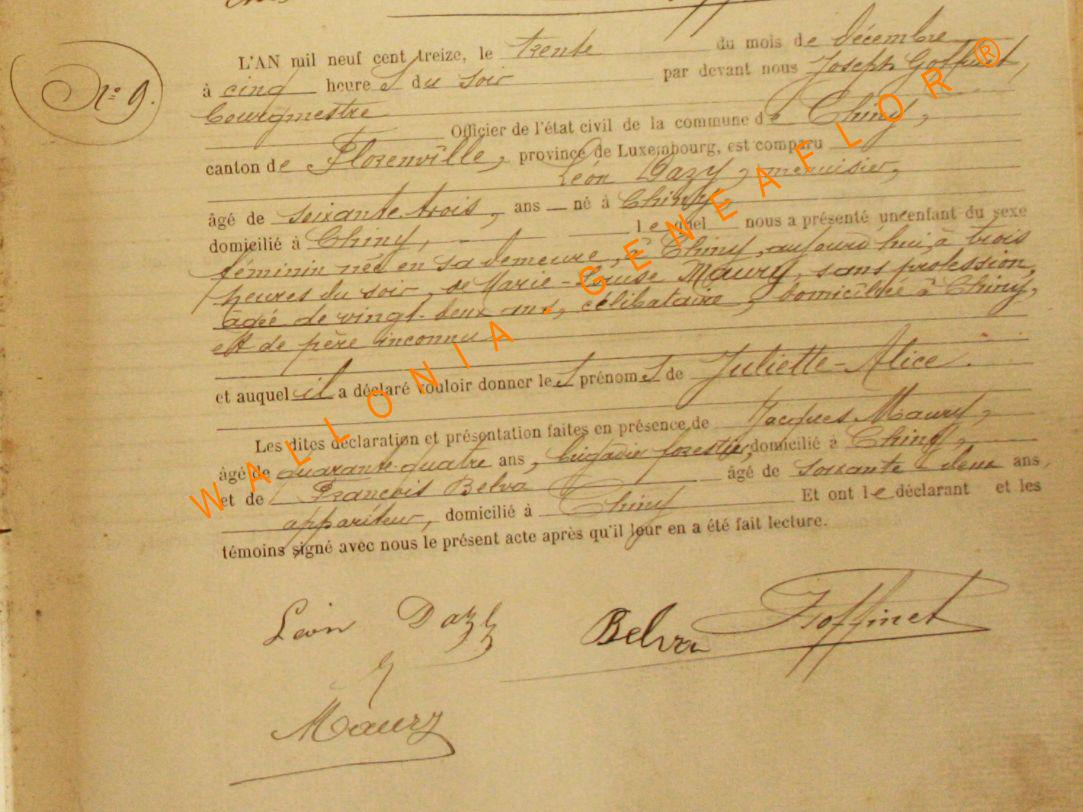 N° 9.
L'AN mil neuf cent treize, le trente du mois de décembre
à cinq heures du soir par devant nous Joseph Goffinet,
bourgmestre Officier de l'état civil de la commune de Chiny,
canton de Florenville, province de Luxembourg, est comparu
Léon Dazy, menuisier,
âgé de soixante trois, ans né à Chiny,
domicilié à Chiny, lequel nous a présenté un enfant du sexe
féminin née en sa demeure, à Chiny, aujourd'hui, à trois
heures du soir, de Marie-Louise Maury, sans profession,
âgée de vingt-deux ans, célibataire, domiciliée à Chiny,
et de père inconnu
et auquel il a déclaré vouloir donner les prénoms de Juliette-Alice.
Les dites déclaration et présentation faites en présence de Jacques Maury,
âgé de quarante quatre ans, brigadier forestier, domicilié à Chiny,
et de François Belva âgé de soixante deux ans,
appariteur, domicilié à Chiny Et ont le déclarant et les
témoins signé avec nous le présent acte après qu'il leur en a été fait lecture.
Léon Dazy Belva Goffinet
Maury
WALLONIA - GENEAFLOR ®